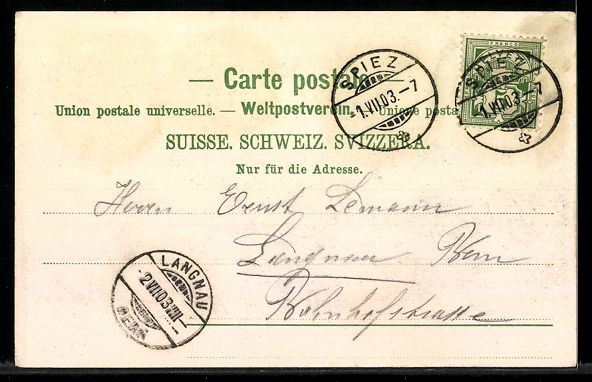 FRANCO
5
SPIEZ
1.VII.03.—7
SPIEZ
1.VII.03.—7
— Carte postale —
Union postale universelle. — Weltpostverein. — Unione posta
SUISSE. SCHWEIZ. SVIZZERA.
Nur für die Adresse.
Herrn Ernst Lemann
Langnau Bern
Bahnhofstrasse
LANGNAU
2.VII.03.VIII—
BERN